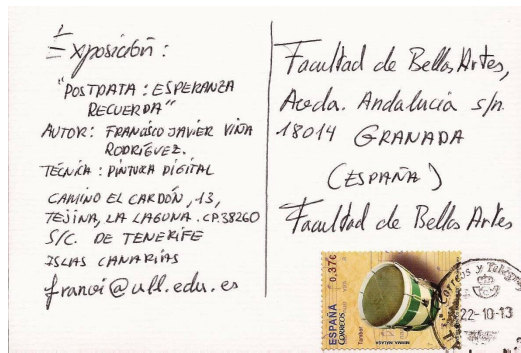 Exposición:
"POSTDATA: ESPERANZA
RECUERDA"
AUTOR: FRANCISCO JAVIER VIÑA
RODRÍGUEZ.
TÉCNICA: PINTURA DIGITAL
CAMINO EL CARDÓN, 13,
TEJINA, LA LAGUNA. CP. 38260
S/C. DE TENERIFE
ISLAS CANARIAS
franvi@ull.edu.es
Facultad de Bellas Artes,
Avda. Andalucía s/n.
18014 GRANADA
(ESPAÑA)
Facultad de Bellas Artes
ESPAÑA
CORREOS
0,37€
Tambor
Correos y
22-10-13